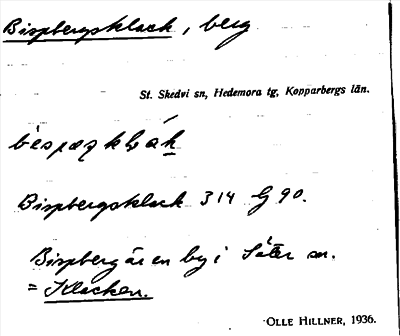 Bispbergsklack, berg
St. Skedvi sn, Hedemora tg, Kopparbergs län.
Bispbergsklack 314 G 90.
Bispberg är en by i Säter sn.
= Klacken.
OLLE HILLNER, 1936.